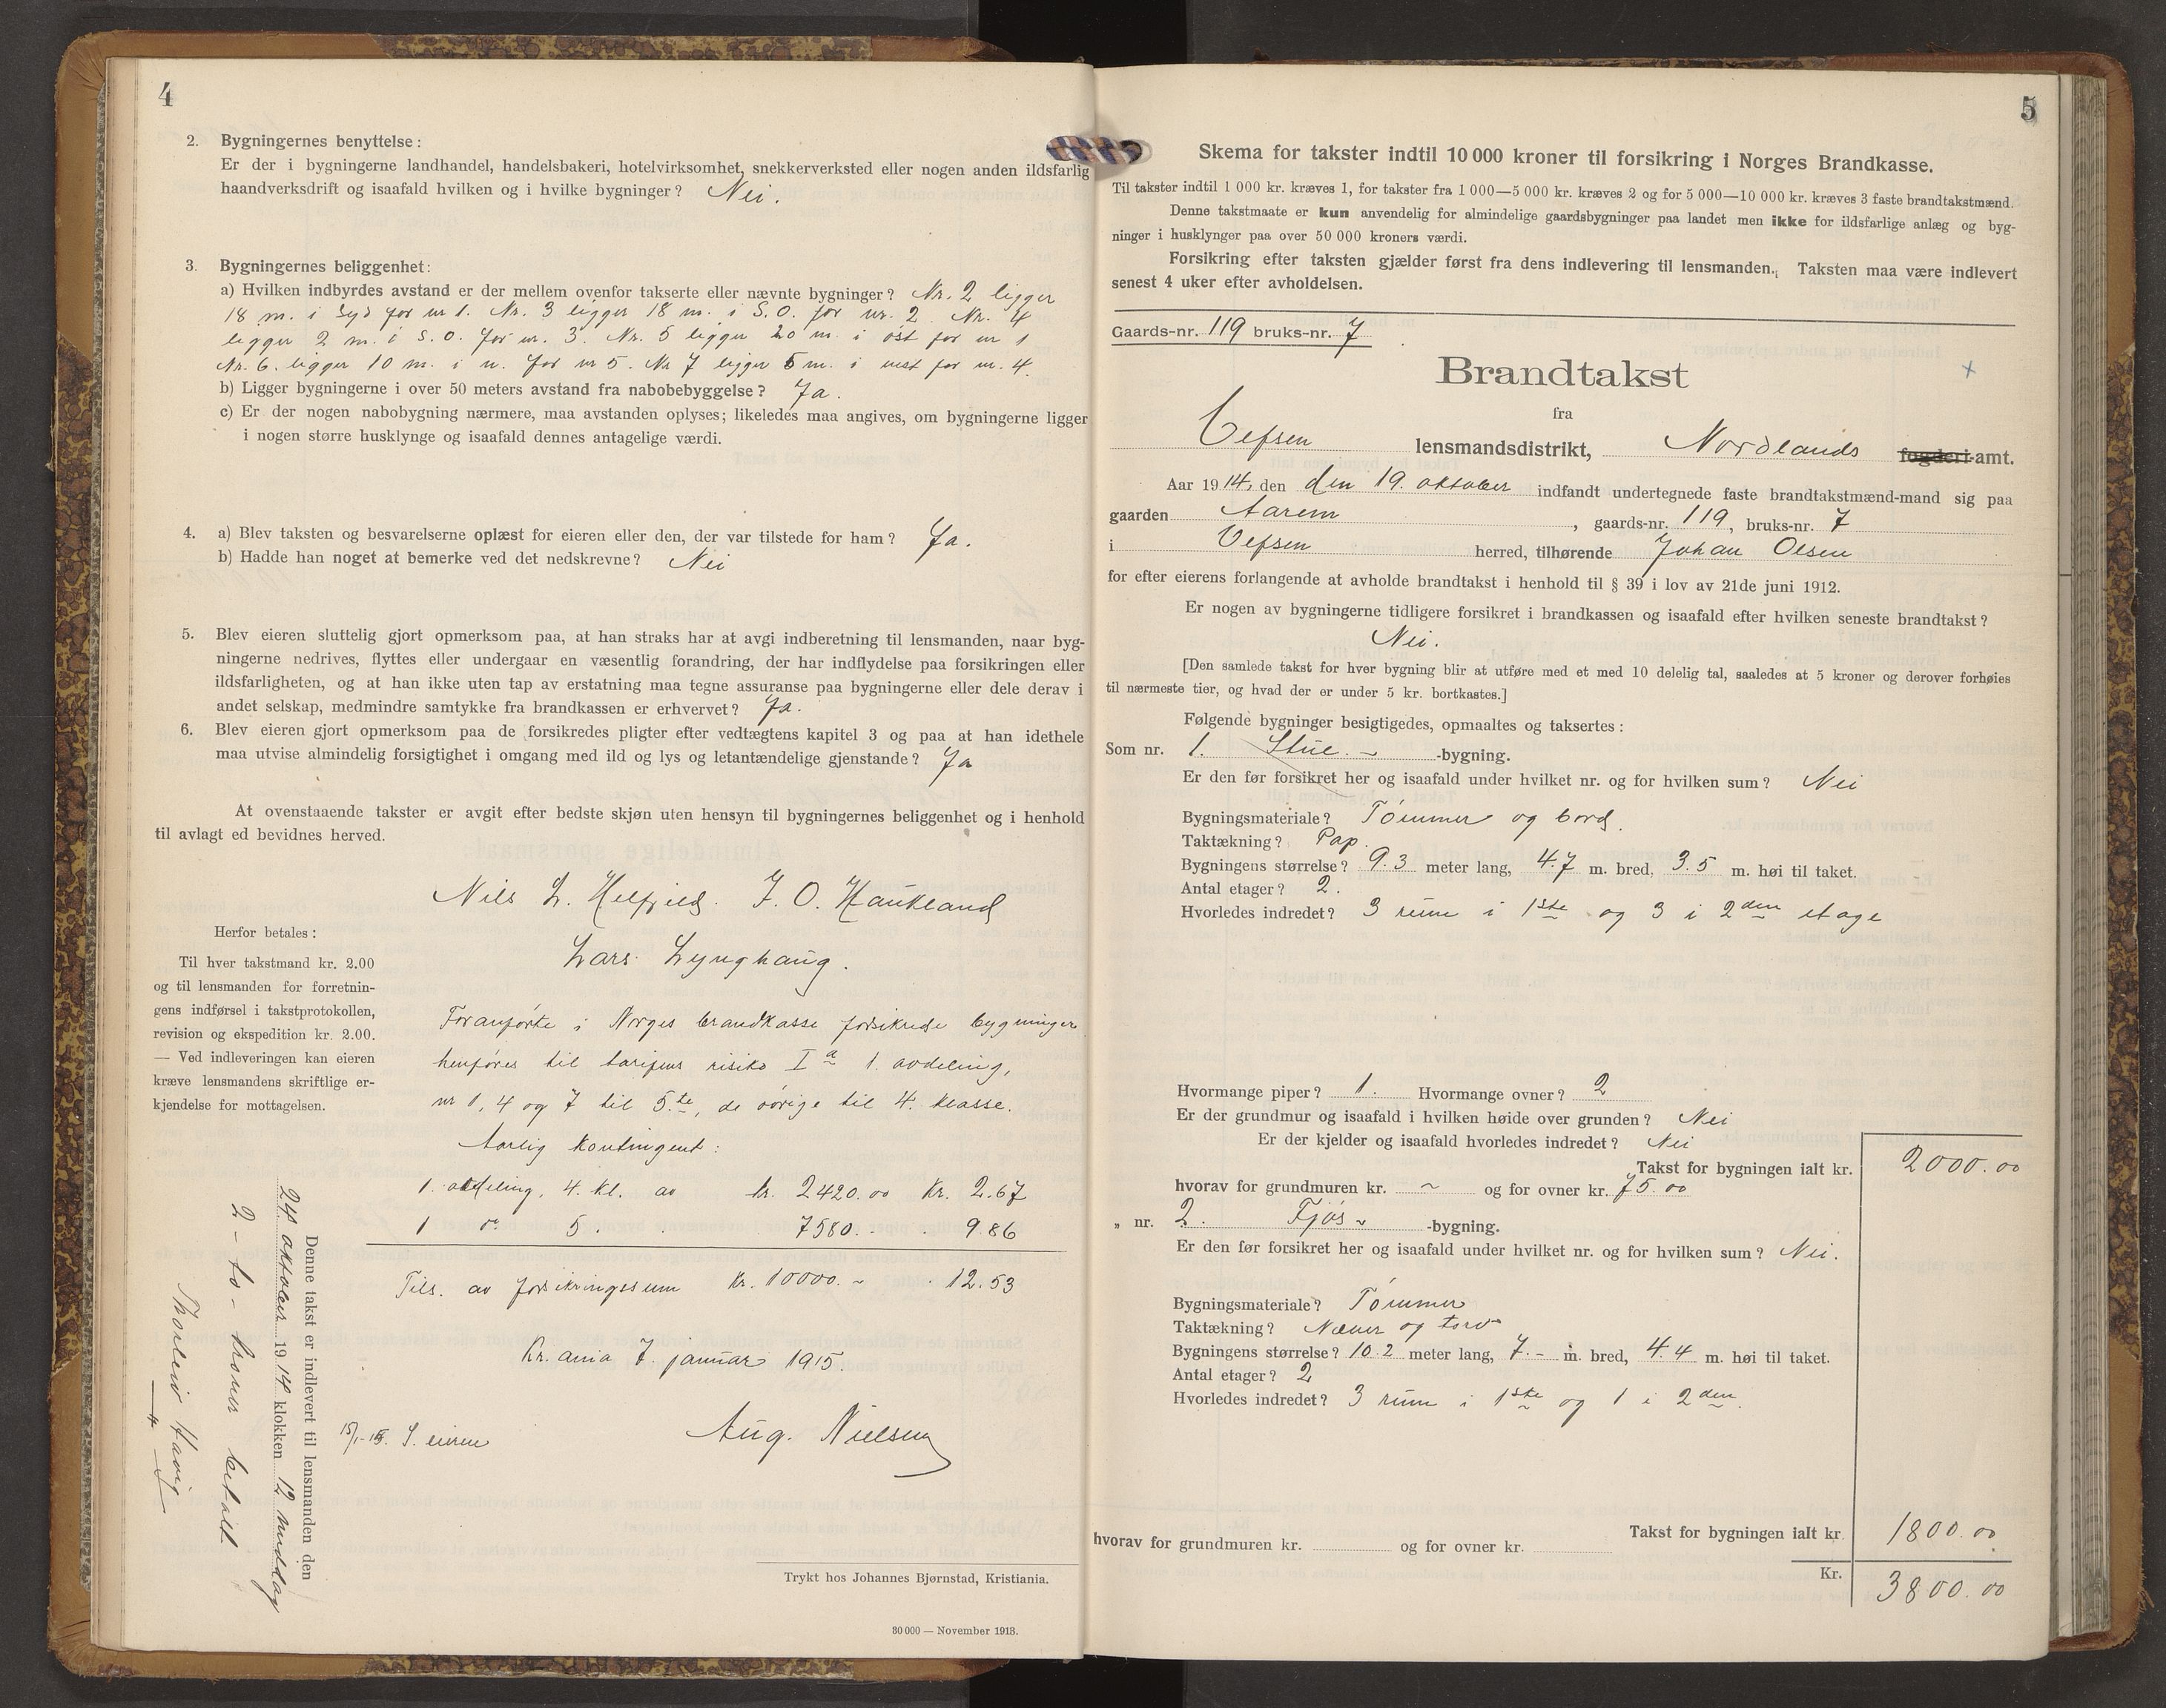 4
2. Bygningernes benyttelse:
Er der i bygningerne landhandel, handelsbakeri, hotelvirksomhet, snekkerverksted eller nogen anden ildsfarlig
haandverksdrift og isaafald hvilken og i hvilke bygninger? Nei.
3. Bygningernes beliggenhet:
a) Hvilken indbyrdes avstand er der mellem ovenfor takserte eller nævnte bygninger? Nr. 2 ligger
18 m. i Syd for nr 1. Nr. 3 ligger 18 m. i S.O. for nr. 2. Nr. 4
ligger 2 m. i S.O. for nr. 3. Nr. 5 ligger 20 m. i øst for nr 1
Nr. 6. ligger 10 m. i n. for nr 5. Nr 7 ligger 5 m. i vest for nr. 4.
b) Ligger bygningerne i over 50 meters avstand fra nabobebyggelse? Ja.
c) Er der nogen nabobygning nærmere, maa avstanden oplyses; likeledes maa angives, om bygningerne ligger
i nogen større husklynge og isaafald dennes antagelige værdi.
4. a) Blev taksten og besvarelserne oplæst for eieren eller den, der var tilstede for ham? Ja.
b) Hadde han noget at bemerke ved det nedskrevne? Nei
5. Blev eieren sluttelig gjort opmerksom paa, at han straks har at avgi indberetning til lensmanden, naar byg-
ningerne nedrives, flyttes eller undergaar en væsentlig forandring, der har indflydelse paa forsikringen eller
ildsfarligheten, og at han ikke uten tap av erstatning maa tegne assuranse paa bygningerne eller dele derav i
andet selskap, medmindre samtykke fra brandkassen er erhvervet? Ja.
6. Blev eieren gjort opmerksom paa de forsikredes pligter efter vedtægtens kapitel 3 og paa at han idethele
maa utvise almindelig forsigtighet i omgang med ild og lys og letantændelige gjenstande? Ja
At ovenstaaende takster er avgit efter bedste skjøn uten hensyn til bygningernes beliggenhet og i henhold
til avlagt ed bevidnes herved.
Nils L. Helfjeld. J. O. Haukland
Lars Lynghaug.
Herfor betales:
Til hver takstmand kr. 2.00
og til lensmanden for forretnin-
gens indførsel i takstprotokollen,
revision og ekspedition kr. 2.00.
— Ved indleveringen kan eieren
kræve lensmandens skriftlige er-
kjendelse for mottagelsen.
Foranførte i Norges brandkasse forsikrede bygninger
henføres til tarifens risiko I a 1. avdeling,
nr 1, 4 og 7 til 5.te, de øvrige til 4. klasse.
Aarlig kontingent:
1. avdeling, 4. kl. av kr. 2420.00 Kr. 2.67
1 do 5. 7580. - . 9.86
Tils. av forsikringssum Kr. 10000.- . 12.53
Kr.ania 7. januar 1915.
Aug. Nielsen
15/1-15. S. eieren
Denne takst er indlevert til lensmanden den
24 oktober 1914 klokken 12 middag
2 - to - kroner betalt
Thorleiv Havig
Trykt hos Johannes Bjørnstad, Kristiania.
30 000 — November 1913.
5
Skema for takster indtil 10 000 kroner til forsikring i Norges Brandkasse.
Til takster indtil 1 000 kr. kræves 1, for takster fra 1 000—5 000 kr. kræves 2 og for 5 000—10 000 kr. kræves 3 faste brandtakstmænd.
Denne takstmaate er kun anvendelig for almindelige gaardsbygninger paa landet men ikke for ildsfarlige anlæg og byg-
ninger i husklynger paa over 50 000 kroners værdi.
Forsikring efter taksten gjælder først fra dens indlevering til lensmanden. Taksten maa være indlevert
senest 4 uker efter avholdelsen.
Gaards-nr. 119 bruks-nr. 7
Brandtakst
fra
Vefsen lensmandsdistrikt, Nordlands fogderi-amt.
Aar 1914, den den 19. oktober indfandt undertegnede faste brandtakstmænd-mand sig paa
gaarden Aarem, gaards-nr. 119, bruks-nr. 7
i Vefsen herred, tilhørende Johan Olsen
for efter eierens forlangende at avholde brandtakst i henhold til § 39 i lov av 21de juni 1912.
Er nogen av bygningerne tidligere forsikret i brandkassen og isaafald efter hvilken seneste brandtakst?
Nei.
[Den samlede takst for hver bygning blir at utføre med et med 10 delelig tal, saaledes at 5 kroner og derover forhøies
til nærmeste tier, og hvad der er under 5 kr. bortkastes.]
Følgende bygninger besigtigedes, opmaaltes og taksertes:
Som nr. 1. Stue. - -bygning.
Er den før forsikret her og isaafald under hvilket nr. og for hvilken sum? Nei
Bygningsmateriale? Tømmer og bord.
Taktækning? Pap.
Bygningens størrelse? 9.3 meter lang, 4.7 m. bred, 3.5 m. høi til taket.
Antal etager? 2.
Hvorledes indredet? 3 rum i 1ste og 3 i 2den etage
Hvormange piper? 1. Hvormange ovner? 2
Er der grundmur og isaafald i hvilken høide over grunden? Nei
Er der kjelder og isaafald hvorledes indredet? Nei
Takst for bygningen ialt kr. 2000.00
hvorav for grundmuren kr. ~ og for ovner kr. 75.00
„ nr. 2. Fjøs ~ -bygning.
Er den før forsikret her og isaafald under hvilket nr. og for hvilken sum? Nei.
Bygningsmateriale? Tømmer
Taktækning? Næver og torv
Bygningens størrelse? 10.2 meter lang, 7.- m. bred, 4.4 m. høi til taket.
Antal etager? 2
Hvorledes indredet? 3 rum i 1ste og 1 i 2den.
Takst for bygningen ialt kr. 1800.00
hvorav for grundmuren kr. og for ovner kr.
Kr. 3800.00